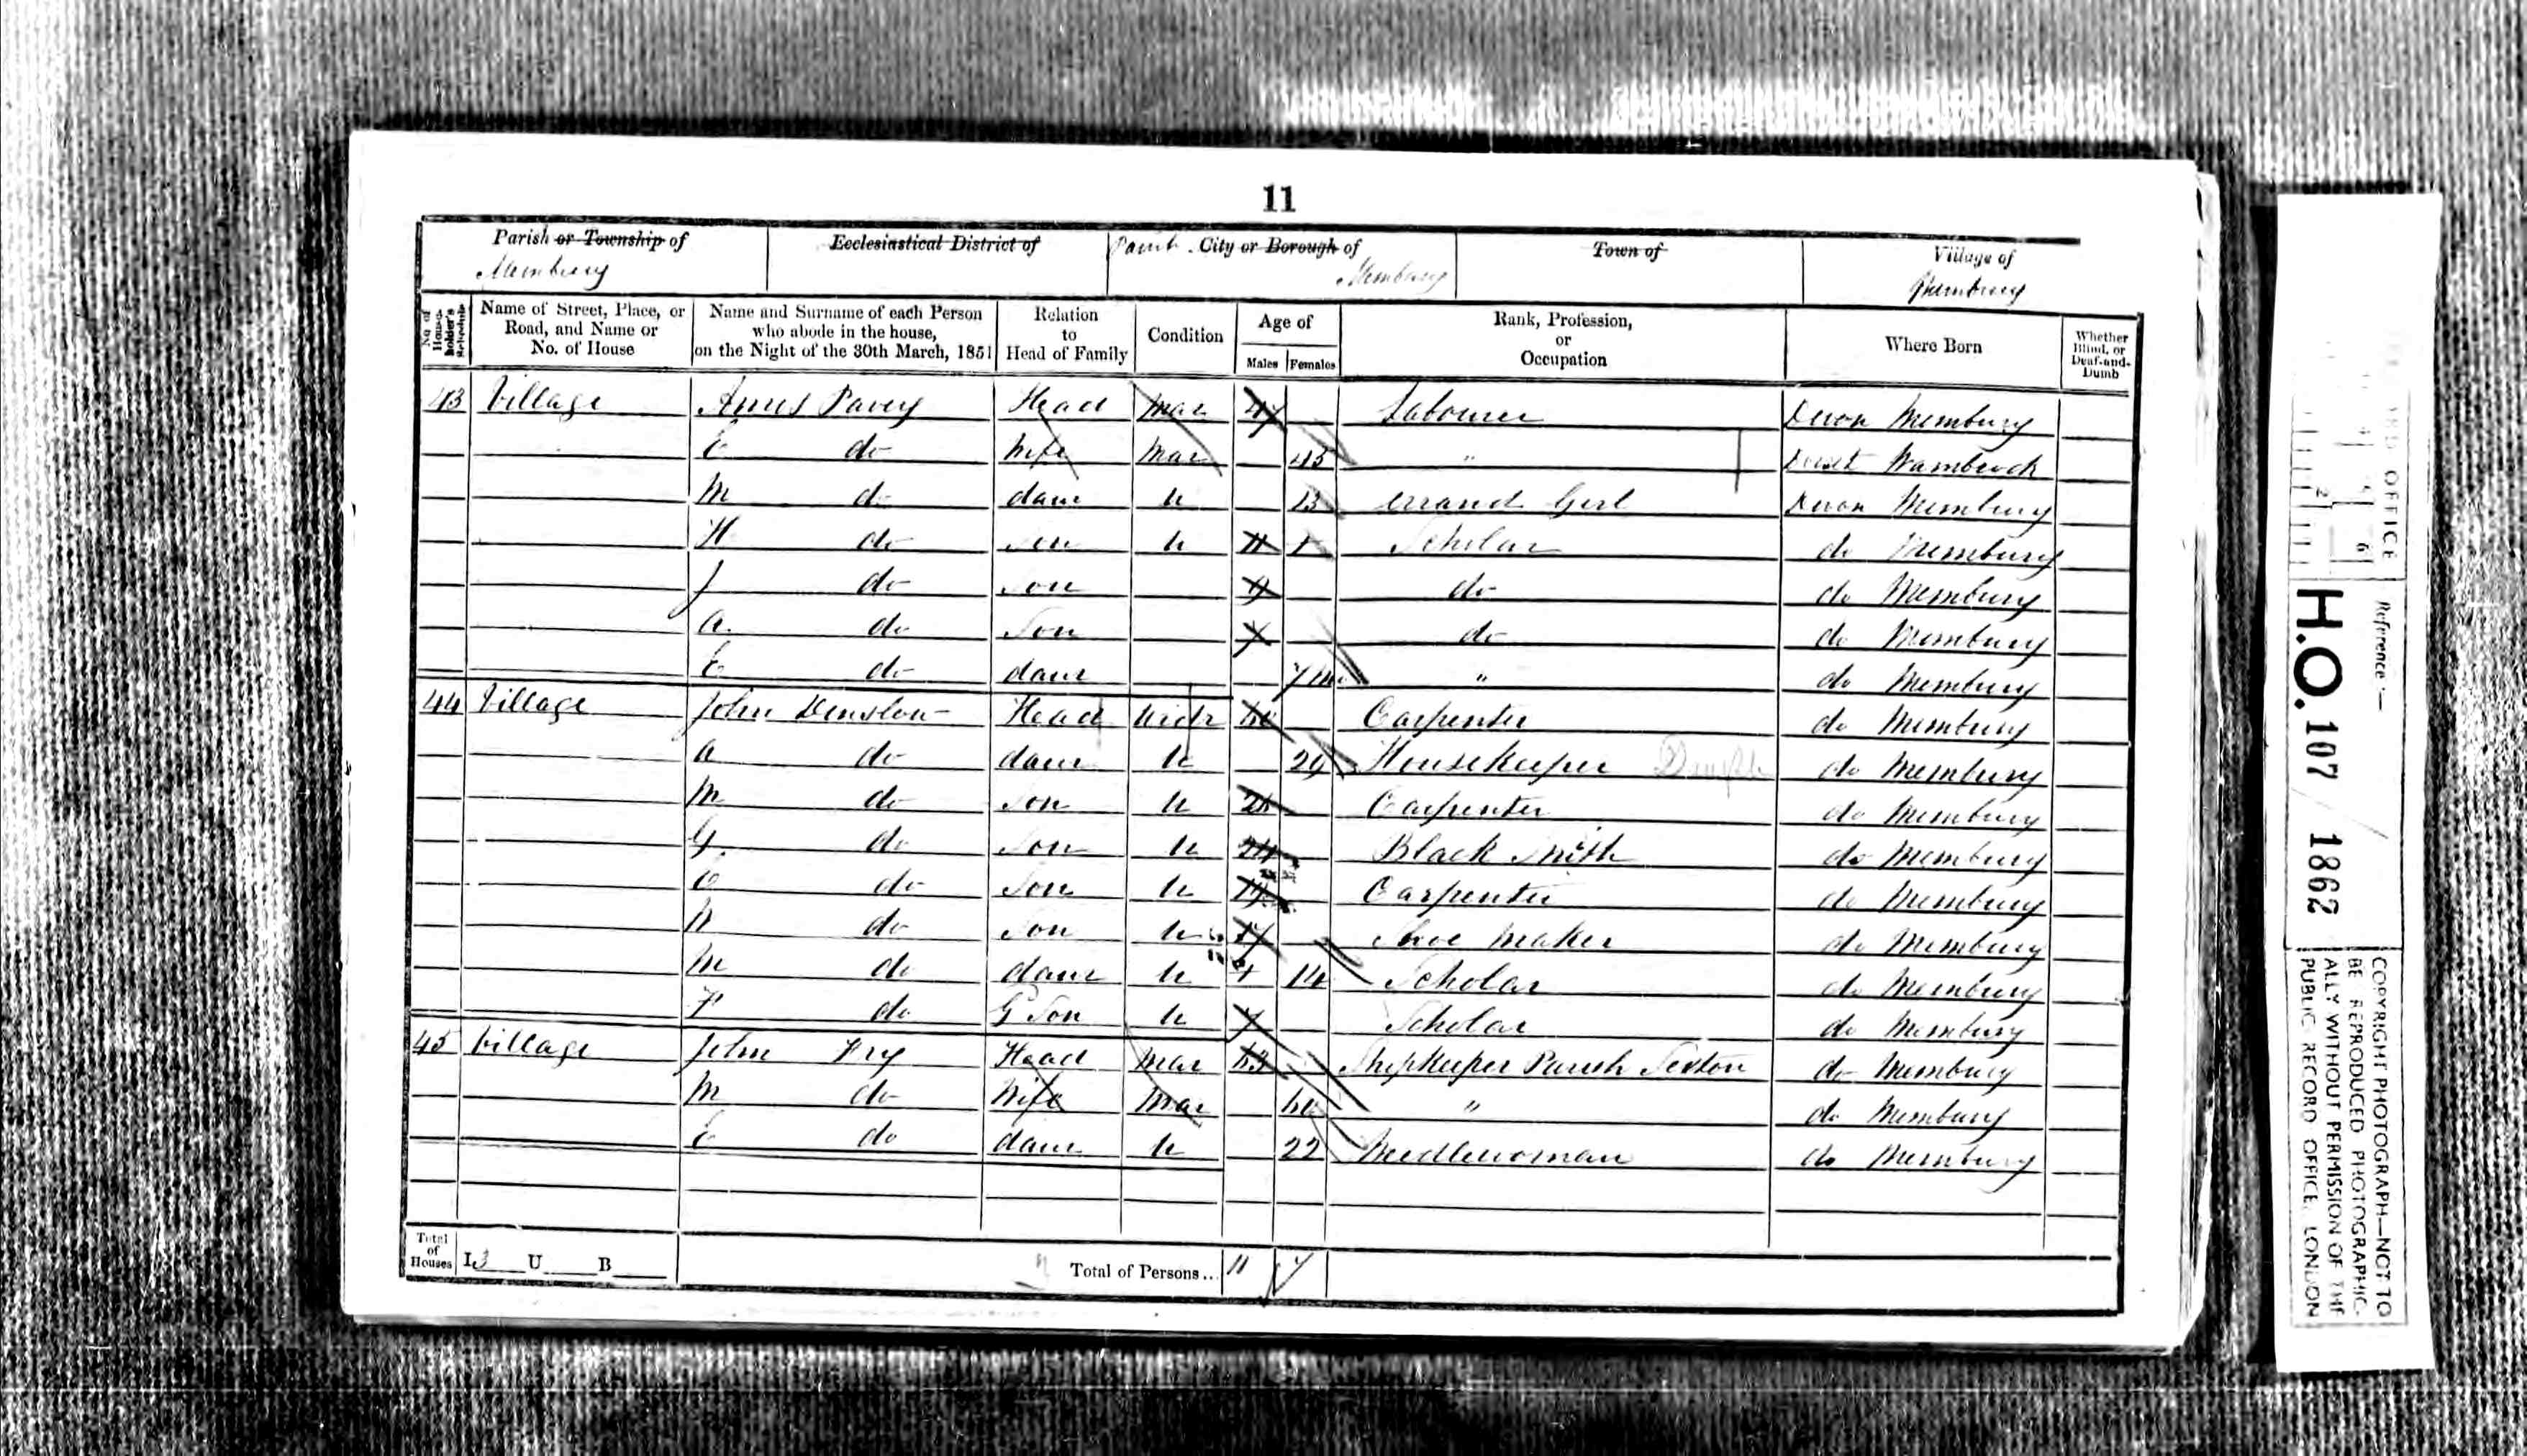 11
Parish or Township of Membury
Ecclesiastical District of
City or Borough of Membury
Town of
Village of Membury
No. of House-holder's Schedule
Name of Street, Place, or Road, and Name or No. of House
Name and Surname of each Person who abode in the house, on the Night of the 30th March, 1851
Relation to Head of Family
Condition
Age of Males Females
Rank, Profession, or Occupation
Where Born
Whether Blind, or Deaf-and-Dumb
43 Village Amos Pavey Head Mar 47 Labourer Devon Membury
E do Wife Mar 45 " Dorset Wambrook
M do daur U 13 errand Girl Devon Membury
H do Son U 11 Scholar do Membury
J do Son 9 do do Membury
A do Son do do Membury
E do daur 7 m " do Membury
44 Village John Denslow Head Widr Carpenter do Membury
A do daur U 29 Housekeeper do Membury
M do Son U Carpenter do Membury
G do Son U 24 Black Smith do Membury
E do Son U 19 Carpenter do Membury
W do Son U 17 Shoe Maker do Membury
M do daur U 14 Scholar do Membury
F do G Son U 7 Scholar do Membury
45 Village John Fry Head Mar 63 Shopkeeper Parish Sexton do Membury
M do Wife Mar 60 " do Membury
E do daur U 22 Needlewoman do Membury
Total of Houses I 3 U B
Total of Persons... 11 7
RD OFFICE
Reference:—
H.O. 107 / 1862
COPYRIGHT PHOTOGRAPH—NOT TO
BE REPRODUCED PHOTOGRAPHIC-
ALLY WITHOUT PERMISSION OF THE
PUBLIC RECORD OFFICE, LONDON